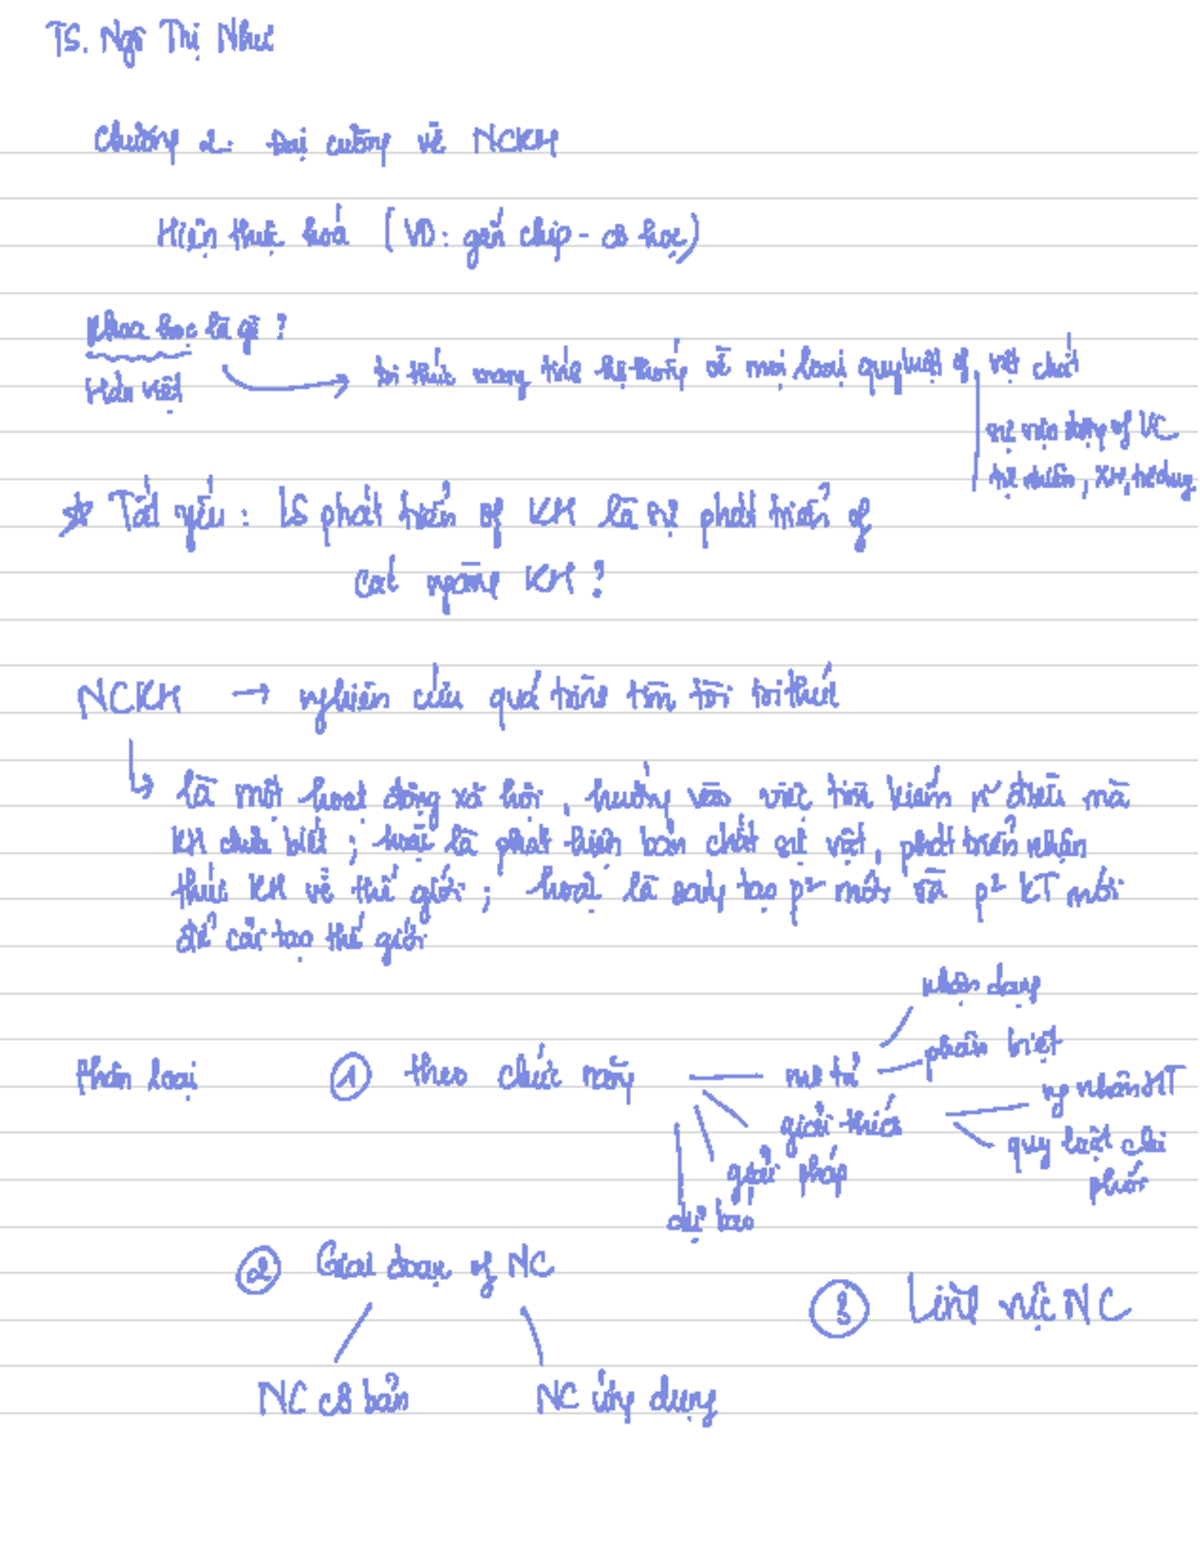 TS. Ngô Thị Như
Chương 2: Đại cương về NCKH
Hiện thực hoá (VD: gắn chip - cá học)
Khoa học là gì?
Hán việt
tri thức mang tính hệ thống về mọi loại quy luật of vật chất
sự vận động of VC
tự nhiên, XH, tư duy
☆ Tất yếu: LS phát triển of KH là sự phát triển of
các ngành KH?
NCKH → nghiên cứu quá trình tìm tòi tri thức
↳ là một hoạt động xã hội, hướng vào việc tìm kiếm n~ điều mà
KH chưa biết; hoặc là phát hiện bản chất sự vật, phát triển nhận
thức KH về thế giới; hoặc là sáng tạo p² mới và p² KT mới
để cải tạo thế giới
Phân loại
① theo chức năng
mô tả
nhận dạng
phân biệt
giải thích
ng nhân HT
quy luật chi
phối
giải pháp
dự báo
② Giai đoạn of NC
NC cơ bản
NC ứng dụng
③ Lĩnh vực NC